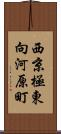 西京極東
向河原町